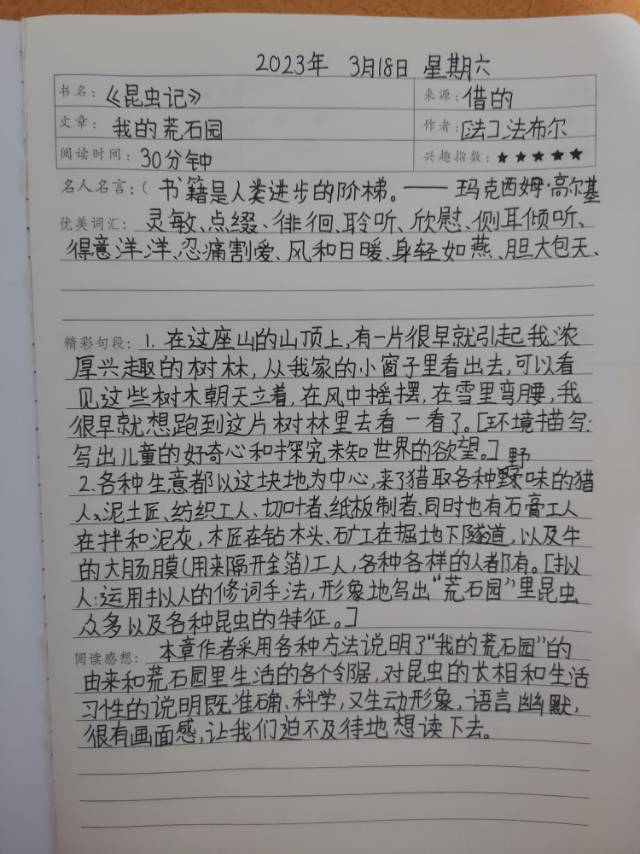 2023年 3月18日 星期六
书名：《昆虫记》 来源：借的
文章：我的荒石园 作者：[法]法布尔
阅读时间：30分钟 兴趣指数：★★★★★
名人名言：( 书籍是人类进步的阶梯。——玛克西姆·高尔基
优美词汇：灵敏、点缀、徘徊、聆听、欣慰、侧耳倾听、
得意洋洋、忍痛割爱、风和日暖、身轻如燕、胆大包天、
精彩句段：1. 在这座山的山顶上,有一片很早就引起我浓
厚兴趣的树林,从我家的小窗子里看出去,可以看
见这些树木朝天立着,在风中摇摆,在雪里弯腰,我
很早就想跑到这片树林里去看一看了。[环境描写:
写出儿童的好奇心和探究未知世界的欲望。]
2.各种生意都以这块地为中心,来了猎取各种野味的猎
人、泥土匠、纺织工人、切叶者、纸板制者、同时也有石膏工人
在拌和泥灰,木匠在钻木头、矿工在掘地下隧道,以及牛
的大肠膜(用来隔开金箔)工人,各种各样的人都有。[拟
人:运用拟人的修词手法,形象地写出“荒石园”里昆虫
众多以及各种昆虫的特征。]
阅读感想：本章作者采用各种方法说明了“我的荒石园”的
由来和荒石园里生活的各个邻居,对昆虫的长相和生活
习性的说明既准确、科学,又生动形象,语言幽默,
很有画面感,让我们迫不及待地想读下去。